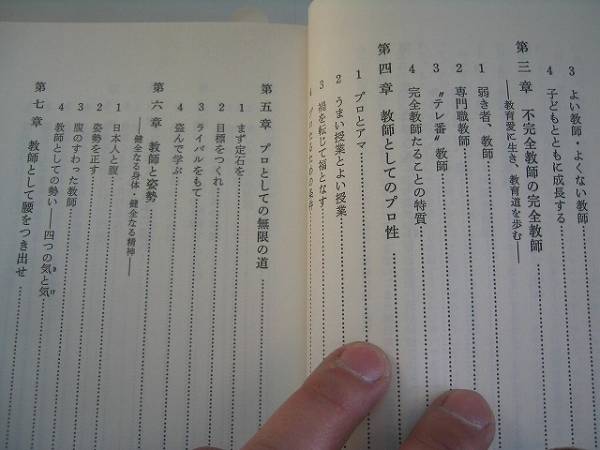 3 よい教師・よくない教師
4 子どもとともに成長する
第三章 不完全教師の完全教師
――教育愛に生き、教育道を歩む――
1 弱き者、教師
2 専門職教師
3 〝テレ番〟教師
4 完全教師たることの特質
第四章 教師としてのプロ性
1 プロとアマ
2 うまい授業とよい授業
3 禍を転じて福となす
第五章 プロとしての無限の道
1 まず定石を
2 目標をつくれ
3 ライバルをもて
4 盗んで学ぶ
第六章 教師と姿勢
――健全なる身体・健全なる精神――
1 日本人と腹
2 姿勢を正す
3 腹のすわった教師
4 教師としての勢い――四つの気と気〟
第七章 教師として腰をつき出せ